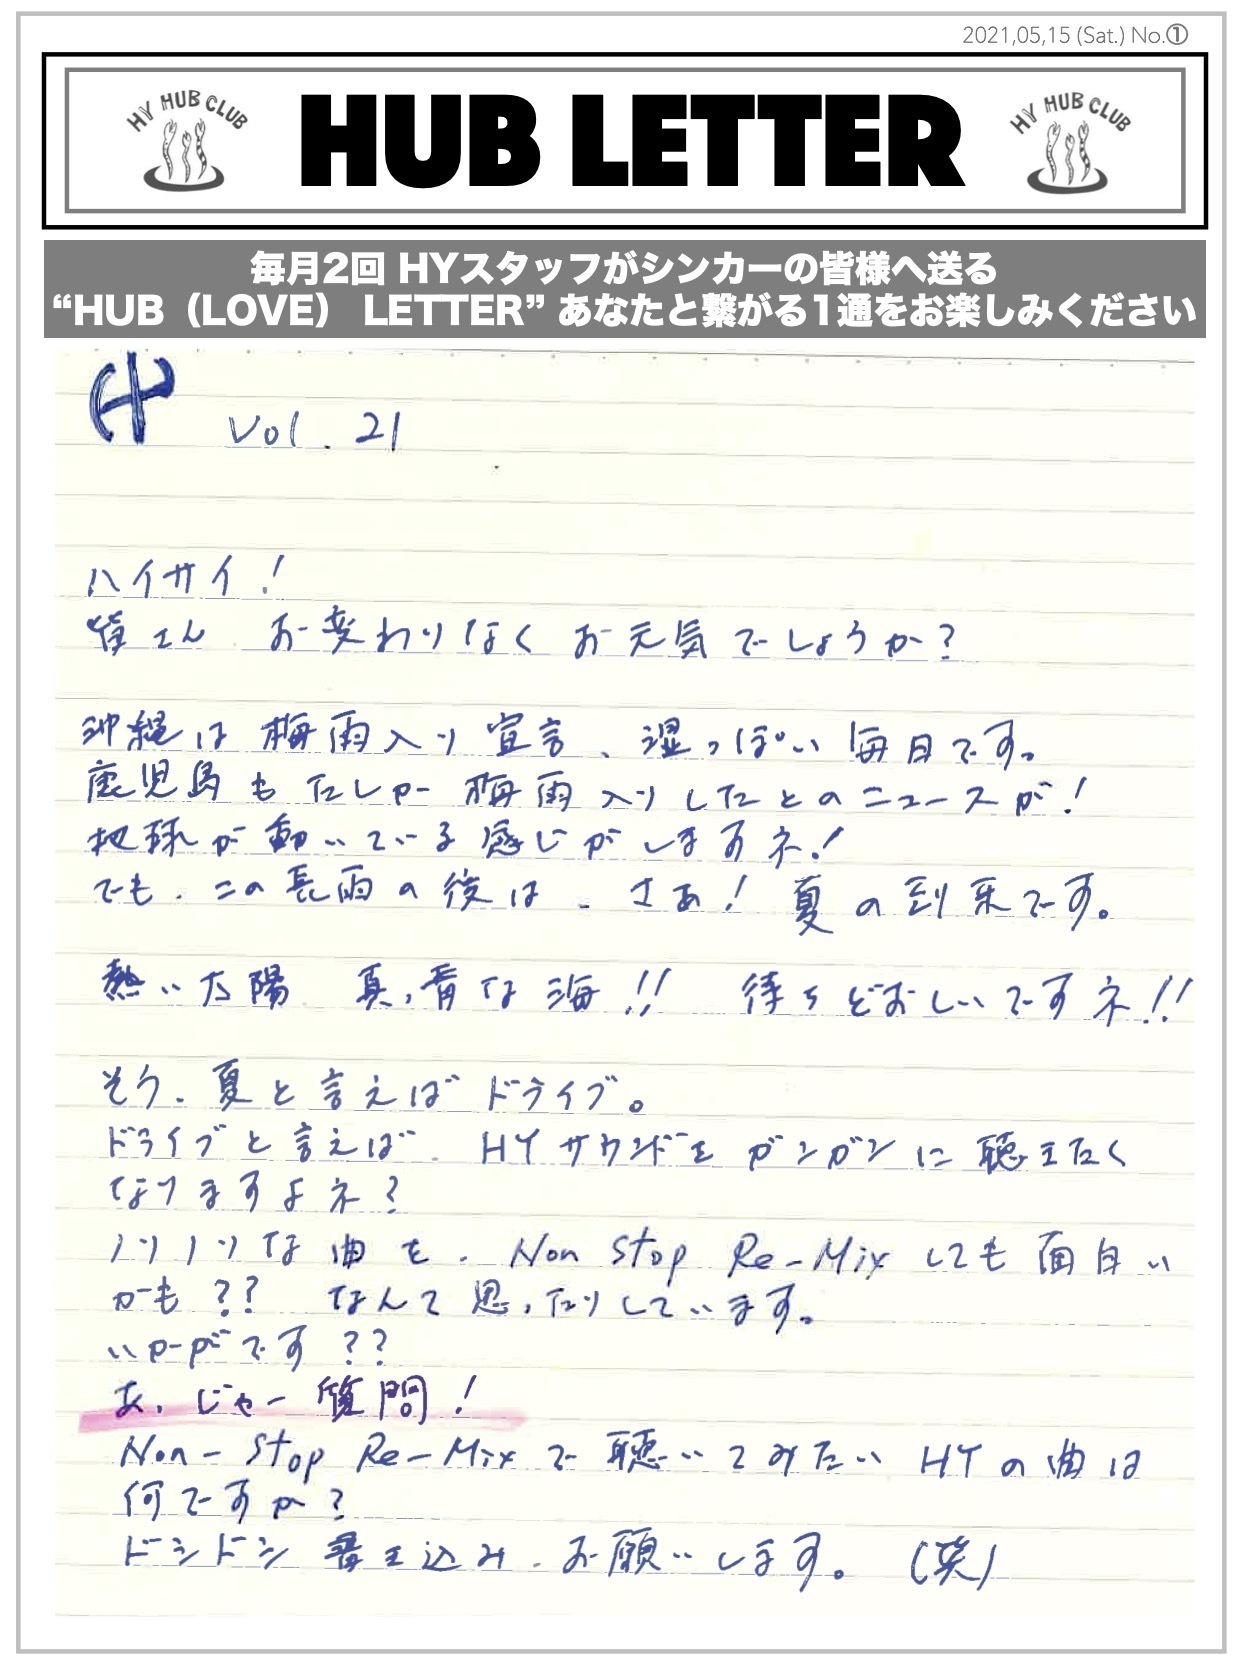 2021,05,15 (Sat.) No.①
HY HUB CLUB
HUB LETTER
HY HUB CLUB
毎月2回 HYスタッフがシンカーの皆様へ送る
“HUB（LOVE） LETTER” あなたと繋がる1通をお楽しみください
Vol. 21
ハイサイ!
皆さん お変わりなく お元気でしょうか?
沖縄は 梅雨入り 宣言、湿っぽい 毎日です。
鹿児島も たしか 梅雨入りしたとのニュースが!
地球が動いている感じがしますネ!
でも、この長雨の後は、さあ! 夏の到来です。
熱い太陽 真っ青な海!! 待ちどおしいですネ!!
そう、夏と言えば ドライブ。
ドライブと言えば、HYサウンドを ガンガンに聴きたく
なりますよネ?
ノリノリな曲を、Non Stop Re-Mixしても面白い
かも?? なんて思ったりしています。
いかがです??
あ、じゃー質問!
Non-Stop Re-Mixで聴いてみたい HYの曲は
何ですか?
ドシドシ 書き込み、お願いします。(笑)